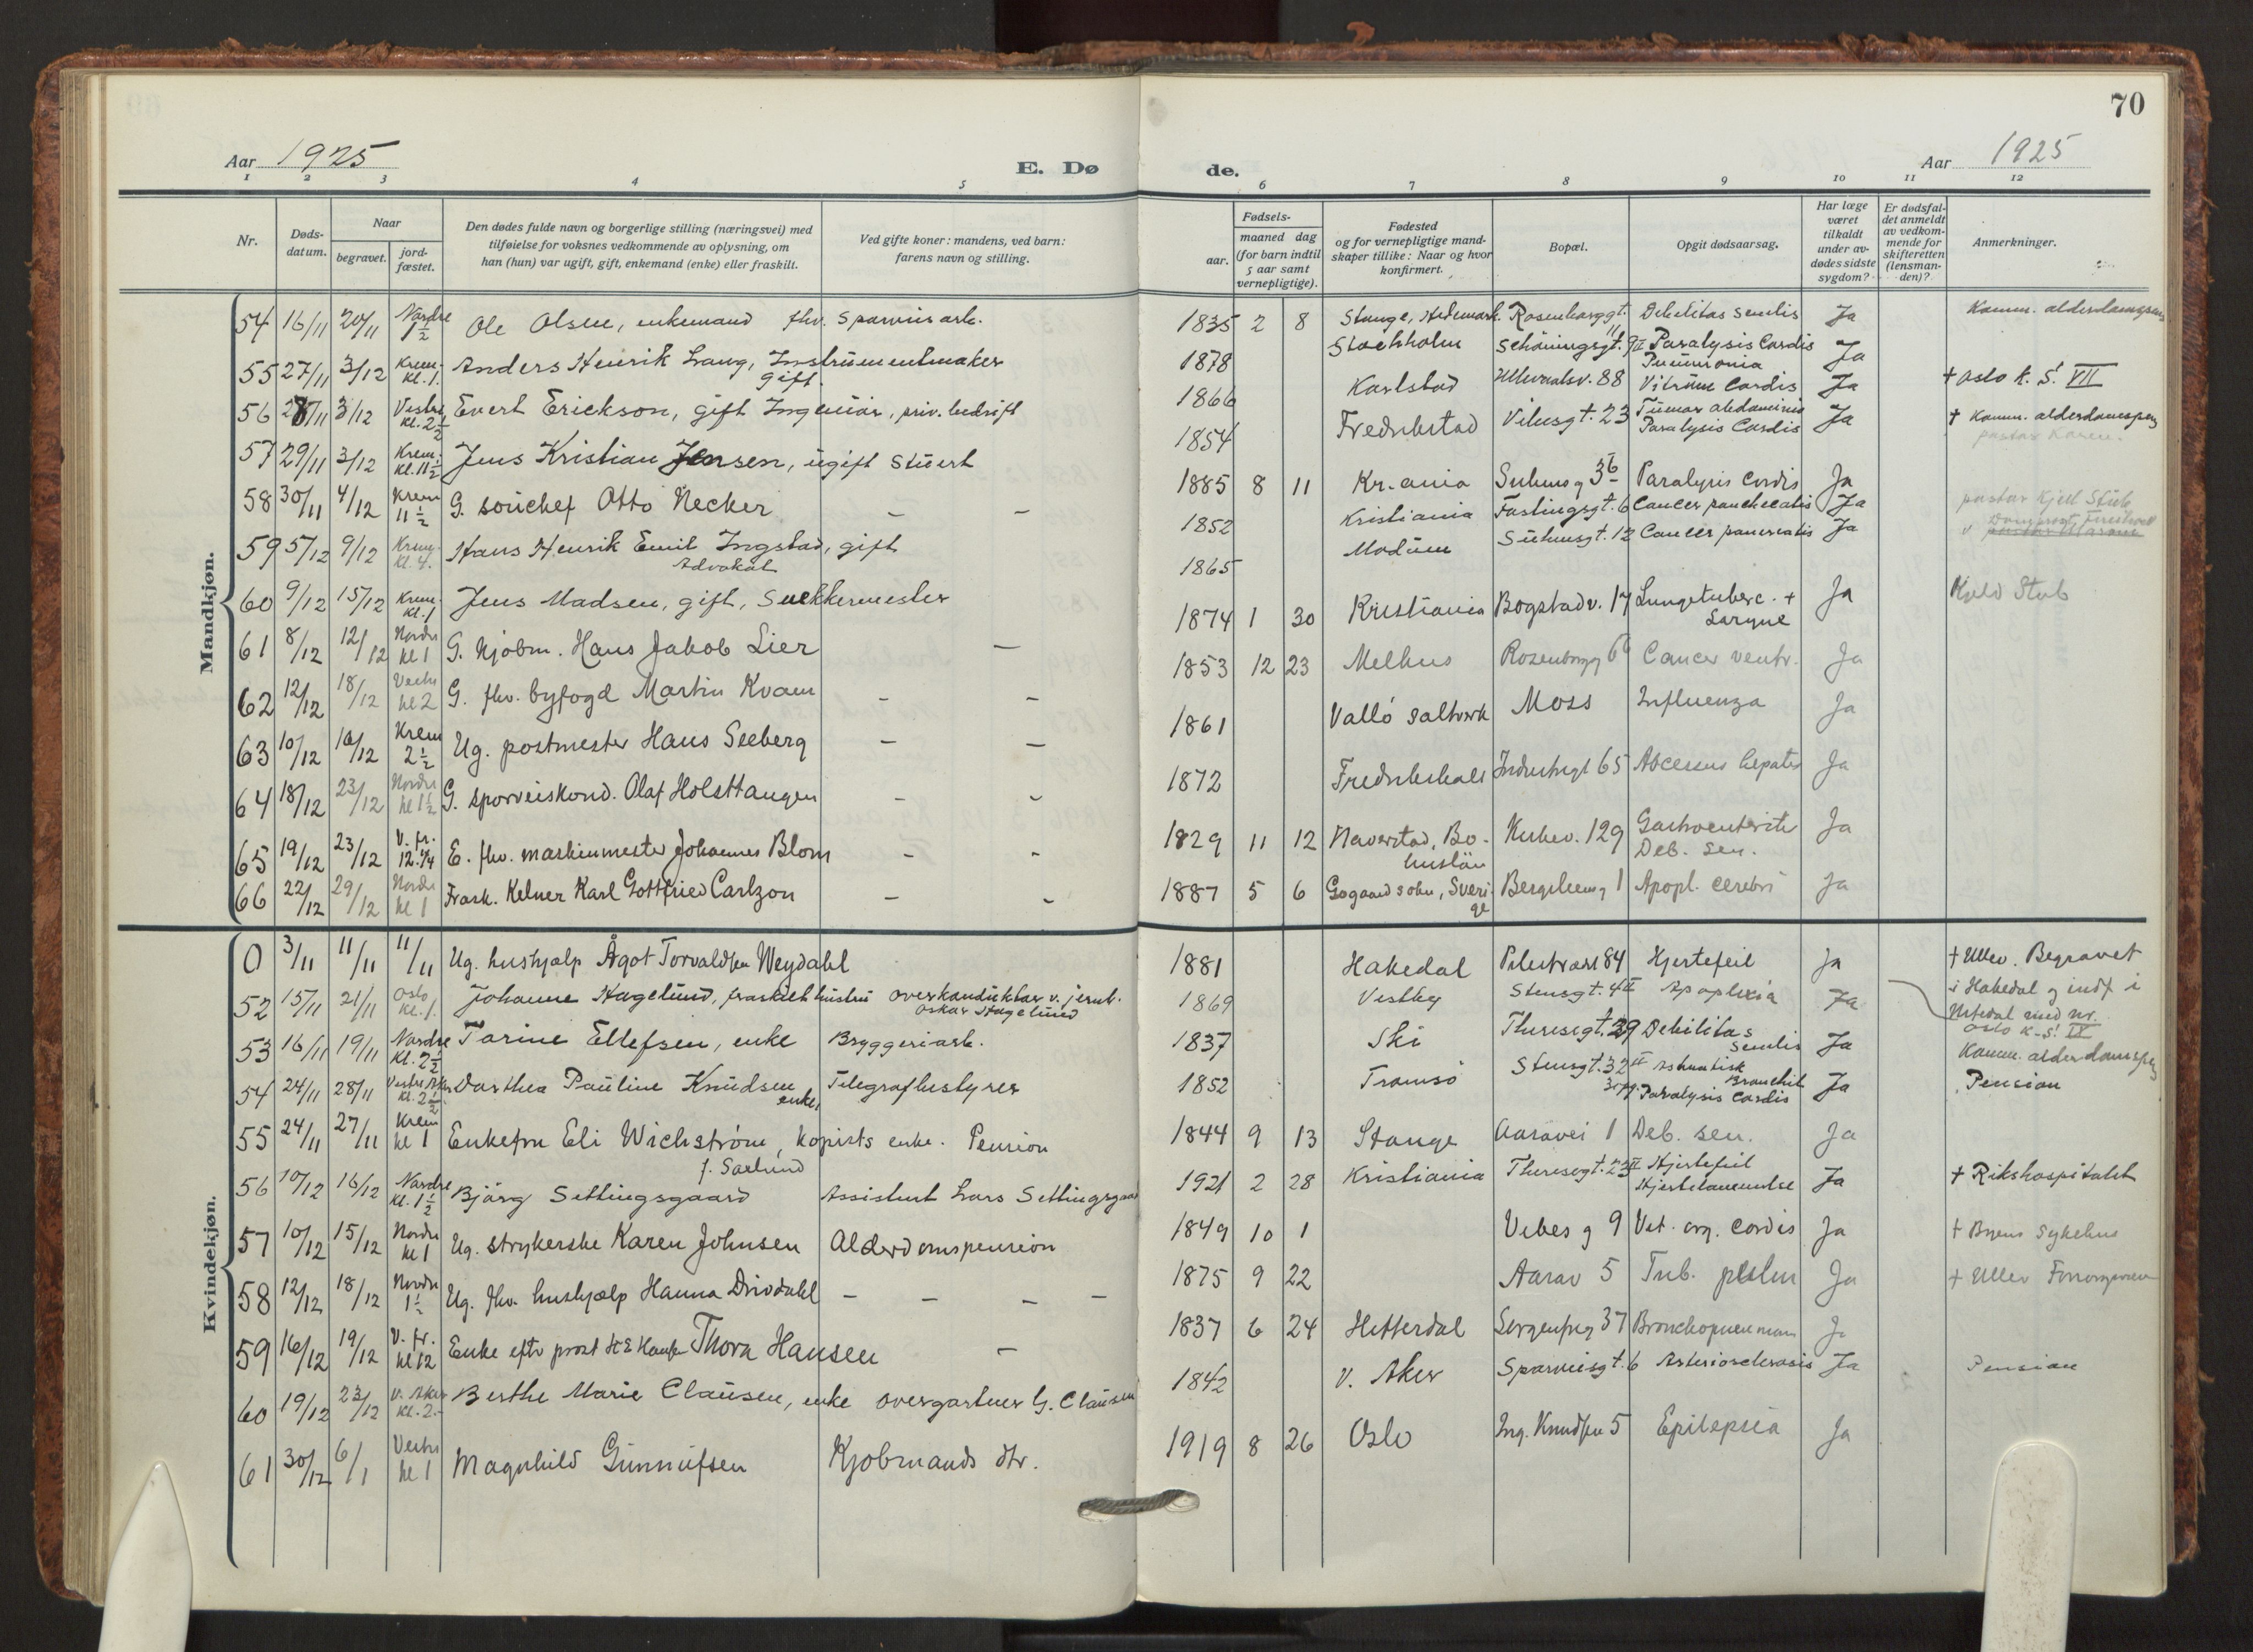 70
Aar 1925
E. Dø
de.
Aar 1925
1 2 3 4 5 6 7 8 9 10 11 12
Nr.
Døds-
datum.
Naar
begravet.
jord-
fæstet.
Den dødes fulde navn og borgerlige stilling (næringsvei) med
tilføielse for voksnes vedkommende av oplysning, om
han (hun) var ugift, gift, enkemand (enke) eller fraskilt.
Ved gifte koner: mandens, ved barn:
farens navn og stilling.
aar.
Fødsels-
maaned dag
(for barn indtil
5 aar samt
vernepligtige).
Fødested
og for vernepligtige mand-
skaper tillike: Naar og hvor
konfirmert.
Bopæl.
Opgit dødsaarsag.
Har læge
været
tilkaldt
under av-
dødes sidste
sygdom?
Er dødsfal-
det anmeldt
av vedkom-
mende for
skifteretten
(lensman-
den)?
Anmerkninger.
Mandkjøn.
54 16/11 20/11 Nordre 1½ Ole Olsen, enkemand fhv. sporveisarb. 1835 2 8 Stange, Hedemark. Rosenborggt. 11 Debilitas senilis Ja Komm. alderdomspens
55 27/11 3/12 Krem. kl. 1. Anders Henrik Lang, Instrumentmaker gift. 1878 Stockholm Schøningsgt. 9 II Paralysis Cordis Pneumonia Ja
56 28/11 3/12 Vestre kl. 2½ Evert Erickson, gift Ingeniør, priv. bedrift 1866 Karlstad Ullevaalsv. 88 Vitium Cordis Ja † Oslo k. S. VII
57 29/11 3/12 Krem. kl. 11½ Jens Kristian Jensen, ugift Stuert 1854 Fredrikstad Vibesgt. 23 Tumor abdominis Paralysis Cordis Ja † Komm. alderdomspens
58 30/11 4/12 Krem 11½ G. souchef Otto Necker — — 1885 8 11 Kr.ania Suhmsg 36 Paralysis Cordis Ja
59 5/12 9/12 Krem. kl. 4. Hans Henrik Emil Ingstad, gift Advokat 1852 Kristiania Fastingsgt. 6 Cancer pancreatis Ja pastor Kjell Stub
1865 Modum Suhmsgt. 12 Cancer pancreatis Ja
60 9/12 15/12 Krem. kl. 1 Jens Madsen, gift, Snekkermester
1874 1 30 Kristiania Bogstadv. 17 Lungetuberc. + Larynx Ja Kjeld Stub
61 8/12 12/12 Nordre kl 1 G. Kjøbm. Hans Jakob Lier —
1853 12 23 Melhus Rosenborgg Cancer ventr. Ja
62 12/12 18/12 Vestre kl 2 G. fhv. byfogd Martin Kvam — —
1861 Vallö saltverk Moss Influenza Ja
63 10/12 16/12 Krem 2½ Ug. postmester Hans Seeberg — —
1872 Fredrikshald Industrigt 65 Abcessus hepatis Ja
64 18/12 23/12 Nordre kl 1½ G. sporveiskond. Olaf Holsttangen — —
1829 11 12 Naverstad, Bo-huslän Kirkev. 129 Gastroenterit Deb. sen. Ja
65 19/12 23/12 V. fr. 12.¼ E. fhv. maskinmester Johannes Blom — —
1887 5 6 Sverige Bergslieng 1 Apopl. cerebri Ja
66 22/12 29/12 Nordre kl 1 Frask. Kelner Karl Gottfried Carlzon — —
Kvindekjøn.
0 3/11 11/11 11/11 Ug. hushjælp Ågot Torvaldsen Weydahl 1881 Hakedal Pilestræd 84 Hjertefeil Ja † Ullev. Begravet i Hakedal og indf i
52 15/11 21/11 Oslo kl. 1. Johanne Hagelund, fraskilt hustru overkonduktør v. jernb. Oskar Hagelund 1869 Vestby Stensgt. 4 II Apoplexia Ja Nitedal med nr. Oslo k. S. IX
53 16/11 19/11 Nordre Kl. 2½ Torine Ellefsen, enke Bryggeriarb. 1837 Ski Theresegt. 39 Debilitas senilis Ja Komm. alderdomspens
54 24/11 28/11 Vestre Aker kl. 2½ Dorthea Pauline Knudsen enke, Telegrafbestyrer 1852 Tromsø Stensgt. 32 II Asthmatisk Bronchit Paralysis Cordis Ja Pension
55 24/11 27/11 Krem kl 1 Enkefru Eli Wichstrøm, kopists enke. Pension f. Saxlund 1844 9 13 Stange Aaravei 1 Deb. sen. Ja
56 10/12 16/12 Nordre Kl. 1½ Bjørg Settingsgaard Assistent Lars Settingsgaard 1921 2 28 Kristiania Theresegt. 23 II Hjertefeil Hjertelammelse Ja † Rikshospitalet
57 10/12 15/12 Nordre kl 1 Ug. strykerske Karen Johnsen Alderdomspension 1849 10 1 Vibes g 9 Vit. org. cordis Ja † Byens Sykehus
58 12/12 18/12 Nordre 1½ Ug. fhv. hushjælp Hanna Drivdahl — — — — 1875 9 22 Aarav 5 Tub. pulm Ja † Ullev
59 16/12 19/12 V. fr. kl 12 Enke eftr prost Thora Hansen — 1837 6 24 Hitterdal Sorgenfrig 37 Bronchopneumoni Ja
60 19/12 23/12 V. Aker Kl. 2.- Berthe Marie Clausen, enke overgartner G. Clausen 1842 V. Aker Sporveisgt. 6 Arteriosclerosis Ja Pension
61 30/12 6/1 Vestre kl 1 Magnhild Gunnufsen Kjøbmands dtr. 1919 8 26 Oslo Ing. Knudsen 5 Epilepsia Ja